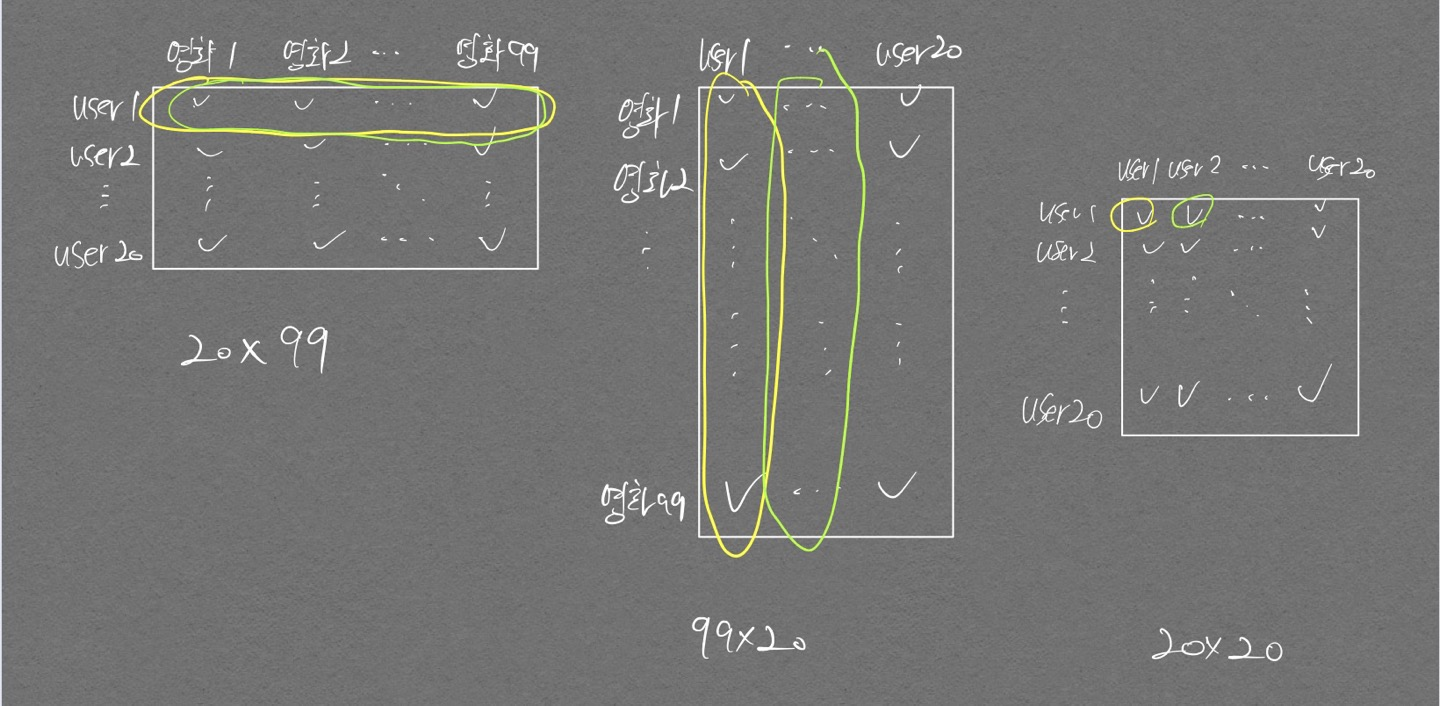 영화1 영화2 ... 영화99
user1
user2
user20
20x99
user1 ... user20
영화1
영화2
영화99
99x20
user1 user2 ... user20
user1
user2
user20
20x20